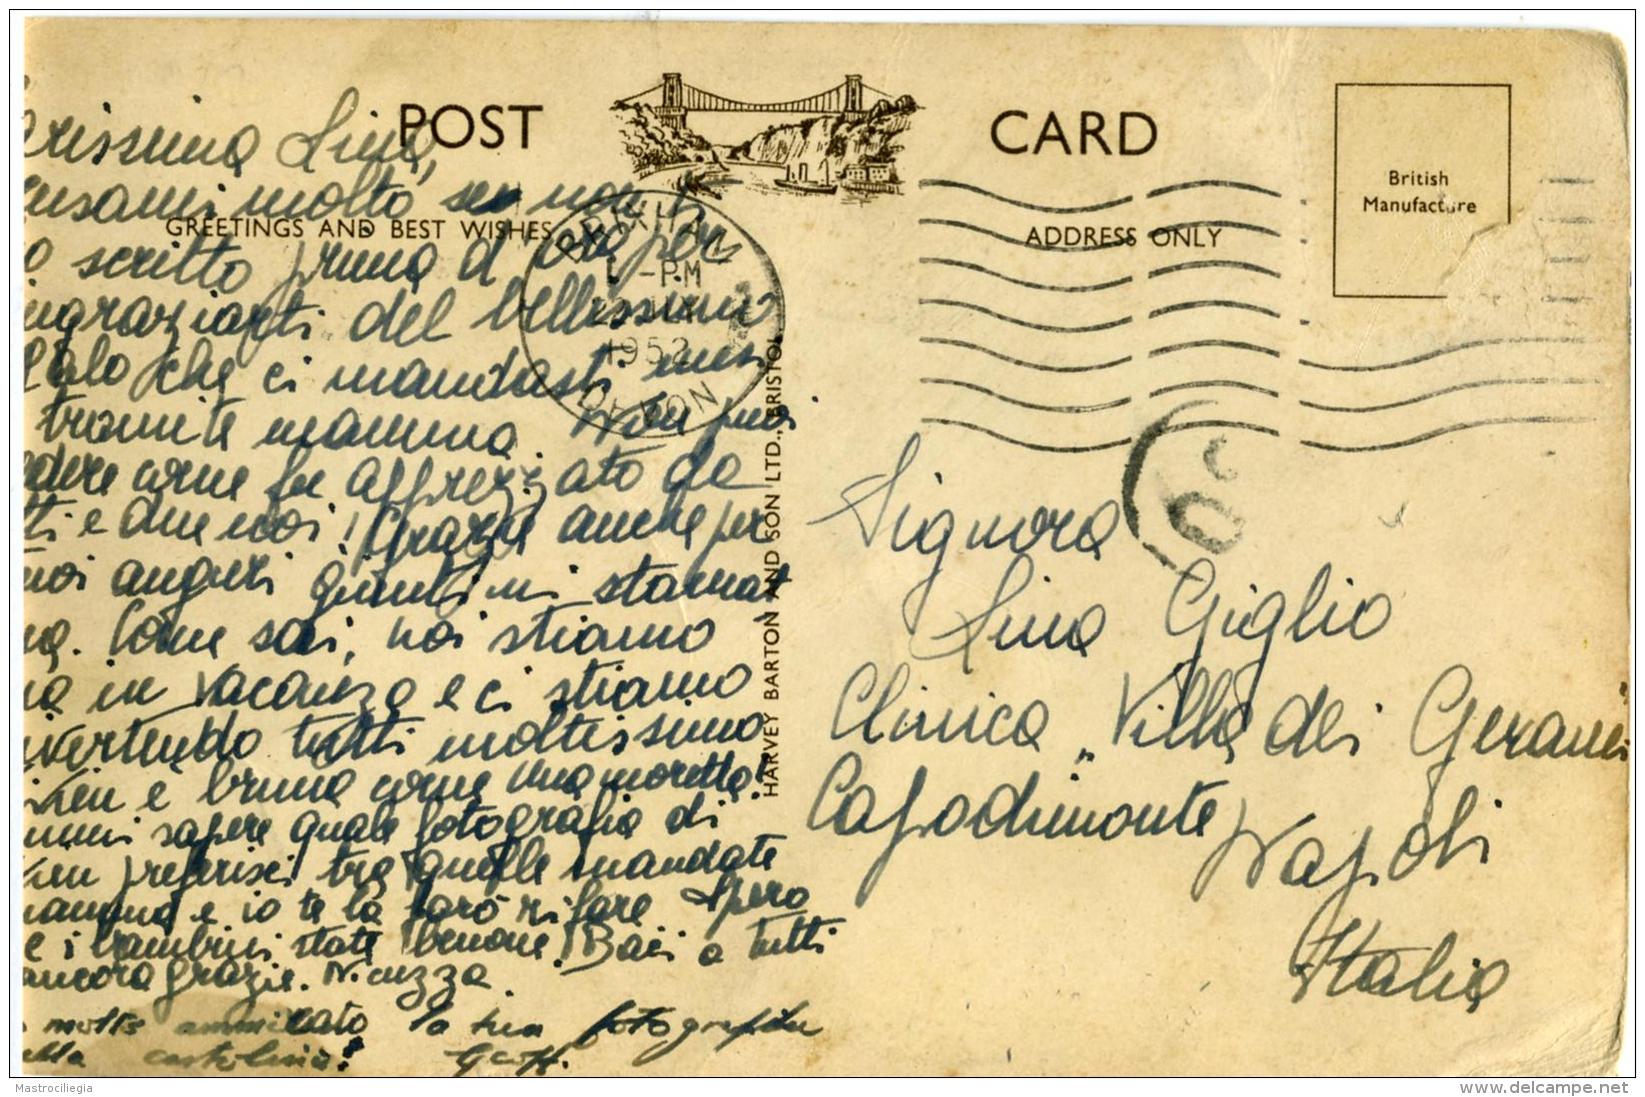 POST CARD
GREETINGS AND BEST WISHES
ADDRESS ONLY
British
Manufacture
BRIXHAM
-PM
1952
DEVON
HARVEY BARTON AND SON LTD., BRISTOL
rissima Lina,
usami molto se non
o scritto prima d'ora per
ngraziarti del bellissimo
che ci mandasti
tramite mamma. Non puoi
edere come fu apprezzato da
tti e due noi! Grazie anche per
uoi auguri giuntimi stamat
na. Come sai, noi stiamo
in vacanza e ci stiamo
ivertendo tutti moltissimo
è bruna come una moretta!
mmi sapere quale fotografia di
preferisci tra quelle mandate
mamma e io te la farò rifare. Spero
e i bambini state benone! Baci a tutti
ancora grazie. Nicuzza
molto ammirato la tua fotografia
lla cartolina! Geoff.
Signora
Lina Giglio
Clinica "Villa dei Gerani
Capodimonte
Napoli
Italia
Mastrociliegia
delcampe.net